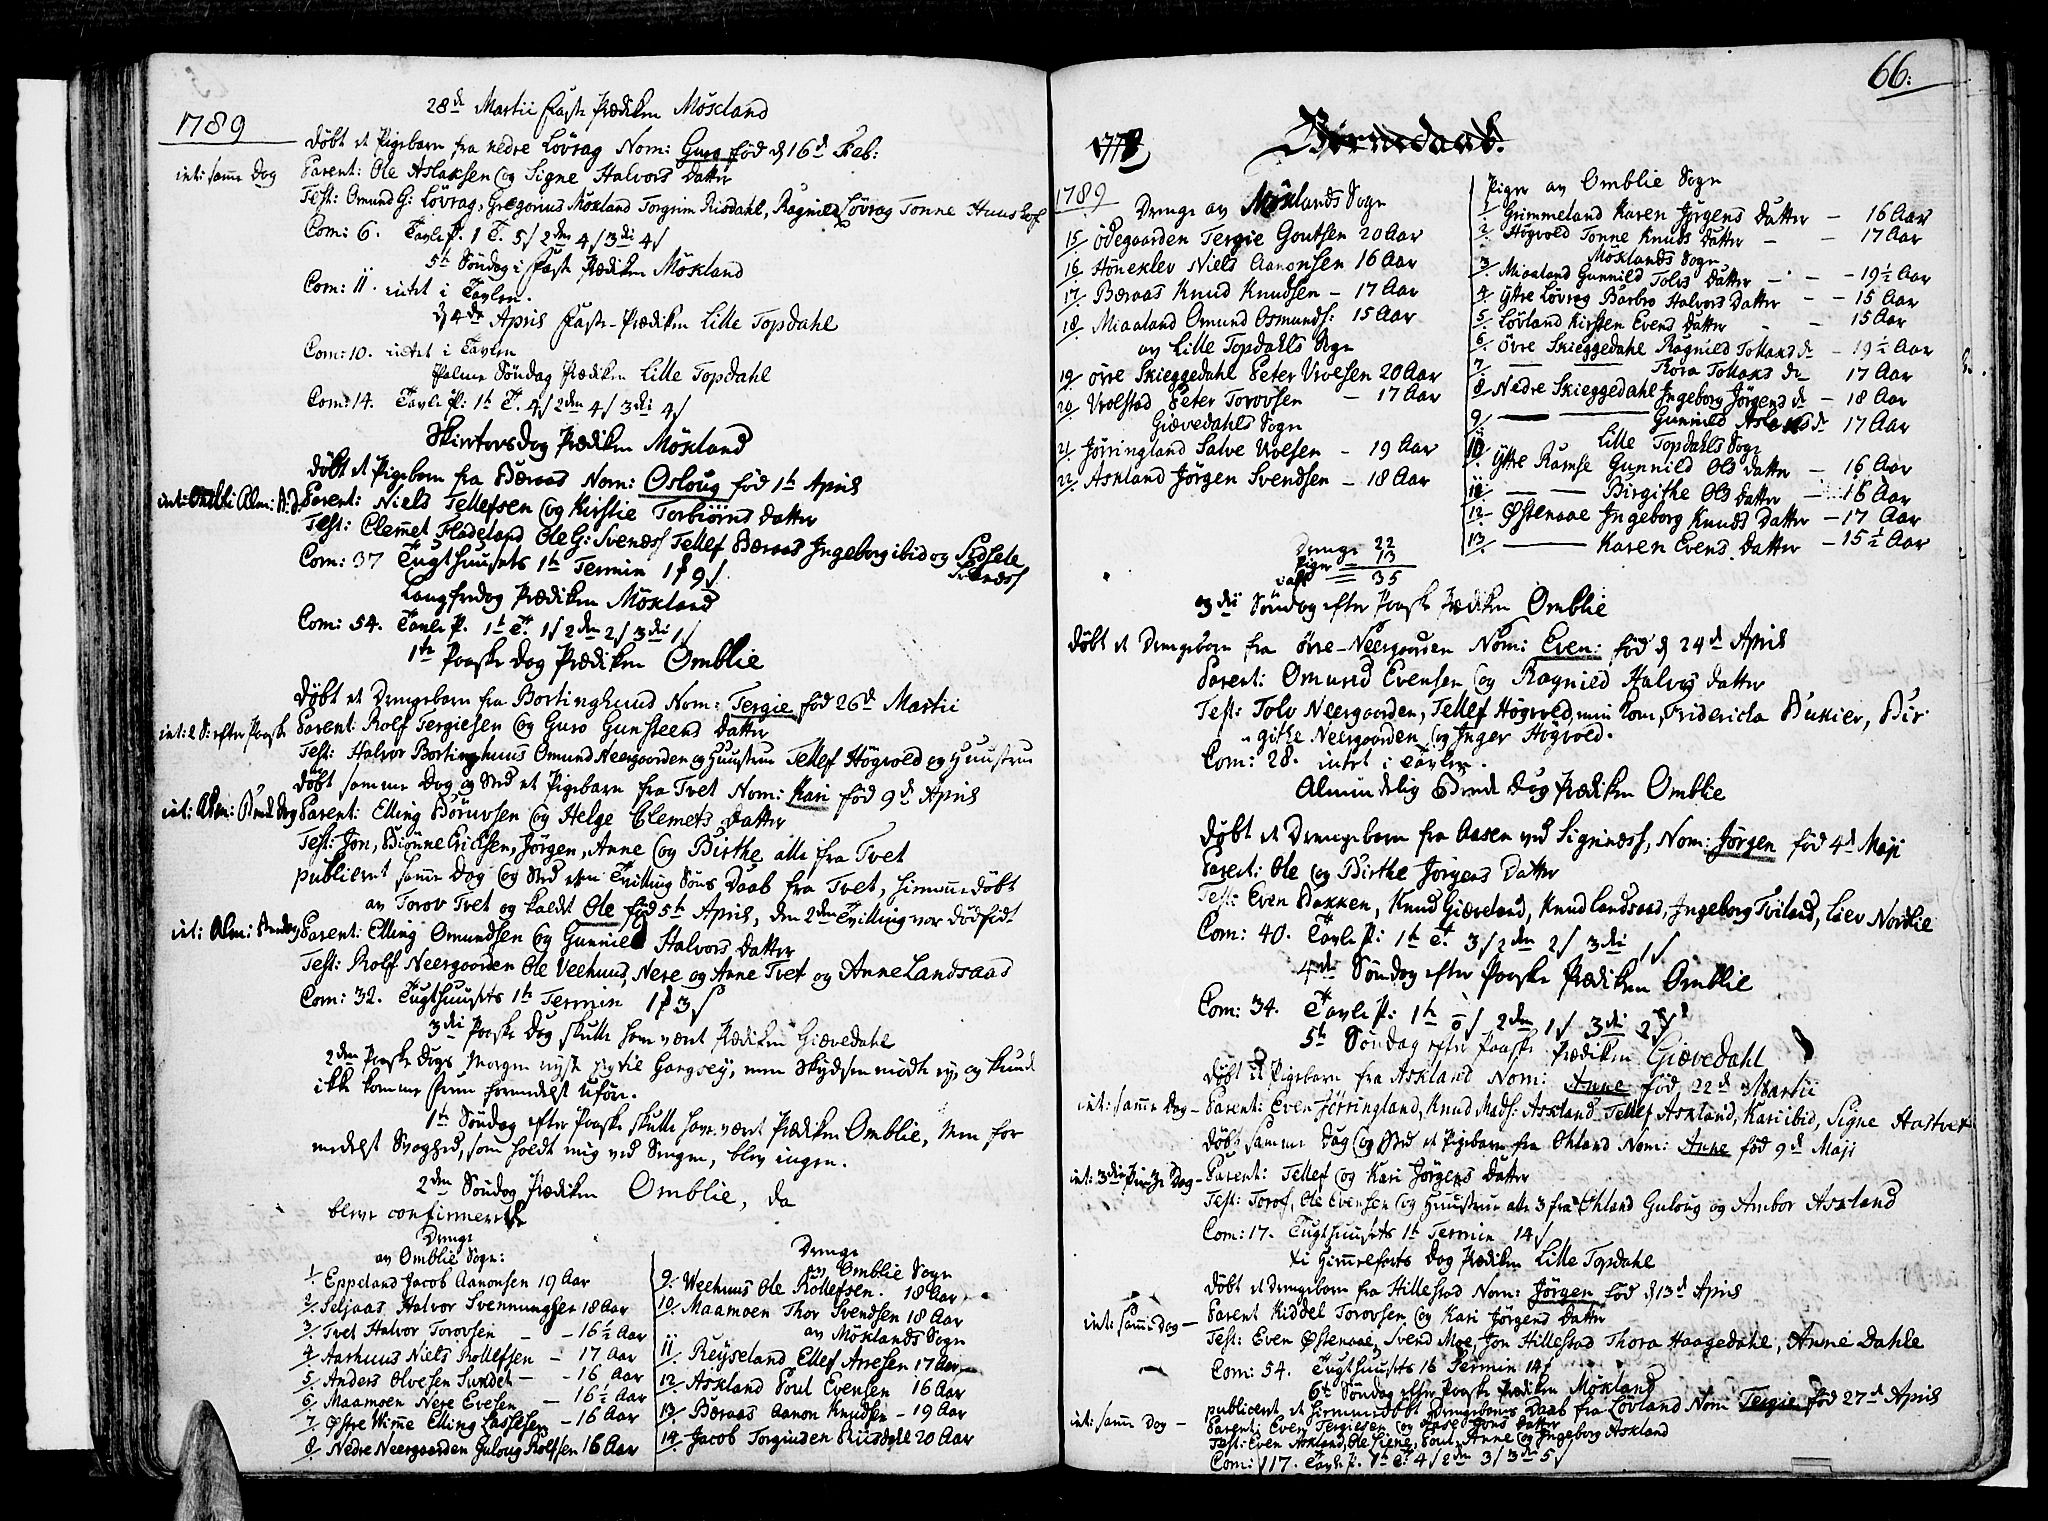 1789
28de Martii Faste Prædiken Möxland
Döbt et Pigebarn fra nedre Lövrag Nom: Guro föd d 16d Feb:
int: samme Dog
Parent: Ole Aslaksen og Signe Halvors Datter
Test: Omund G: Lövrag, Gregorius Möxland Torgrim Risdahl, Ragnild Lövrag Tonne
Com: 6. Tavle P. 1 T. 5/ 2den 4/ 3di 4/
5te Söndag i Faste Prædiken Möxland
Com: 11. intet i Tavlen.
d 4de April Faste-Prædiken Lille Topdahl
Com: 10. intet i Tavlen
Palme Söndag Prædiken Lille Topdahl
Com: 14. Tavle P: 1te T. 4/ 2den 4/ 3di 4/
Skiertorsdag Prædiken Möxland
Döbt et Pigebarn fra Beraas Nom: Osloug föd 1te April
Parent: Niels Tellefsen og Kirstie Torbiörns Datter
Test: Clemet Fladeland Ole G: Svends Tellef Beraas Ingeborg ibid og Sidsele Svends
Com: 37 Tugthuusets 1te Termin 1 9/
Langfredag Prædiken Möxland
Com: 54. Tavle P. 1te T. 1/ 2den 2/ 3di 1/
1te Paaske Dag Prædiken Omblie
Döbt et Drengebarn fra Bortinghuus Nom: Tergie föd 26d Martii
int: 2 S: efter Paaske
Parent: Rolf Tergiesen og Guro Gunsteens Datter
Test: Halvor Bortinghuus Omund Neergaarden og Huustrue Tellef Högvold og Huustrue
Döbt samme Dog og Sted et Pigebarn fra Tvet Nom: Kari föd 9d April
int: Alm: Bede Dog
Parent: Elling Börmsen og Helge Clemets Datter
Test: Jon, Biönne Ericksen, Jörgen, Anne og Birthe alle fra Tvet
publiceret samme Dog og Sted een Tvilling Söns Daab fra Tvet, hiemmedöbt
av Torov Tvet og kaldet Ole föd 5te April, den 2den Tvilling var dödfödt
int: Alm: Bededog
Parent: Elling Omundsen og Gunnild Halvors Datter
Test: Rolf Neergaarden Ole Veehuus, Nere og Anne Tvet og Anne Landsaas
Com: 32. Tugthuusets 1te Termin 1 3/
3di Paaske Dog skulle have været Prædiken Giævedahl
2den Paaske Dags Morgen reyste jeg til Gangsey, men Skydsen mödte ey, og kunde
ikke komme frem formedelst Uföre.
1te Söndag efter Paaske skulle have været Prædiken Omblie, Men for
medelst Svaghed, som holdt mig ved Sengen, blev ingen.
2den Söndag Prædiken Omblie, da
bleve confirmerede
Drenge
av Omblie Sogn:
1/. Eppeland Jacob Aanonsen 19 Aar
2/. Seljaas Halvor Svennungsen 18 Aar
3/. Tvet Halvor Torovsen - - 16½ Aar
4/. Aarhuus Niels Rollefsen - 17 Aar
5/. Anders Olvesen Sundet - - 16 Aar
6/. Maamoen Nere Evesen - 16½ Aar
7/. Östre Wime Elling Lassesen - 16 Aar
8/. Nedre Neergaarden Guloug Rolfsen 16 Aar
Drenge
av Omblie Sogn
9/. Weehuus Ole Rollefsen. 18 Aar
10/. Maamoen Thor Svendsen 18 Aar
av Möxlands Sogn
11/. Reyseland Ellef Arresen 17 Aar
12/. Askland Poul Evensen 16 Aar
13/. Beraas Aanon Knudsen - 19 Aar
14/. Jacob Torginden Riisdahl 20 Aar
66:
Börnedaab.
1789
Drenge av Möxlands Sogn
15/. Ödegaarden Tergie Goutsen 20 Aar
16/. Hönekler Niels Aanonsen 16 Aar
17/. Beraas Knud Knudsen - 17 Aar
18/. Miaaland Omund Osmunds: 15 Aar
av Lille Topdahls Sogn
19/. Övre Skieggedahl Peter Vrolsen 20 Aar
20/. Vrolstad Peter Torovsen - 17 Aar
Giævedahls Sogn
21/. Jörringland Salve Vrolsen - 19 Aar
22/. Askland Jörgen Svendsen - 18 Aar
Drenge 22
Piger - 13
i alt = 35
Piger av Omblie Sogn
1/. Grimmeland Karen Jörgens Datter - 16 Aar
2/. Högvold Tonne Knuds Datter - - 17 Aar
Möxlands Sogn
3/. Miaaland Gunnild Tolvs Datter - - 19½ Aar
4/. Yttre Lövrag Barbro Halvors Datter - - 15 Aar
5/. Lövland Kirsten Evens Datter - - 15 Aar
6/. Övre Skieggedahl Ragnild Tollaks Dr - 19½ Aar
7/. — — Rora Tollaks Dr 17 Aar
8/. Nedre Skieggedahl Ingeborg Jörgens Dr - 18 Aar
9/. — — Gunnild Aslaks Dr 17 Aar
Lille Topdahls Sogn
10/. Yttre Ramse Gunnild Ols Datter - 16 Aar
11/. — — Birgithe Ols Datter - 16 Aar
12/. Østenaae Ingeborg Knuds Datter - 17 Aar
13/. — Karen Evens Datter - 15½ Aar
3di Söndag efter Paaske Prædiken Omblie
Döbt et Drengebarn fra övre-Neergaarden Nom: Even: föd d 24d April
Parent: Omund Evensen og Ragnild Halvors Datter
Test: Tolv Neergaarden, Tellef Högvold, min Kone, Fridericka Bukier, Bir
githe Neergaarden og Inger Högvold.
Com: 28. intet i Tavlen.
Almindelig Bede Dag Prædiken Omblie
Döbt et Drengebarn fra Aasen ved Sigrinds, Nom: Jörgen föd 4d Maji
Parent: Ole og Birthe Jörgens Datter
Test: Even Bakken, Knud Giæveland, Knud Landsaas, Ingeborg Tviland, Liev Nordlie
Com: 40. Tavle P: 1te T. 3/ 2den 2/ 3di 1/
4de Söndag efter Paaske Prædiken Omblie
Com: 34. Tavle P: 1te T 0/ 2den 1/ 3di 2/
5te Söndag efter Paaske Prædiken Giævedahl
Döbt et Pigebarn fra Askland Nom: Anne föd 22d Martii
int: samme Dog - Parent: Even Jörringland, Knud Mads: Askland Tellef Askland, Kari ibid, Signe Hastvet
Döbt samme Dag og Sted et Pigebarn fra Ohland Nom: Anne föd 9d Maji
int: 3die Pintze Dog - Parent: Tellef og Kari Jörgens Datter
Test: Torof, Ole Evensen og Huustrue alle 3 fra Ohland Guloug og Ambor Askland
Com: 17. Tugthuusets 1te Termin 14/
Xi Himmelfarts Dog Prædiken Lille Topdahl
Döbt et Drengebarn fra Hillestad Nom: Jörgen föd d 13d April
int: samme Dog - Parent Kiddel Torovsen og Kari Jörgens Datter
Test: Even Østenaae, Svend Moe Jon Hillestad Thora Haagedahl, Anne Dahle
Com: 54. Tugthuusets 1te Termin 14/
6te Söndag efter Paaske Prædiken Möxland
publiceret et hiemmedöbt Drengebarns Daab fra Lövland Nom Tergie föd 27d April
int: samme Dog - Parent: Even Tergiesen og Aase Jons Datter
Test: Even Askland, Ole Signe, Poul, Anne og Ingeborg Askland
Com: 117. Tavle P. 1te T. 4/ 2den 3/ 3di 5/